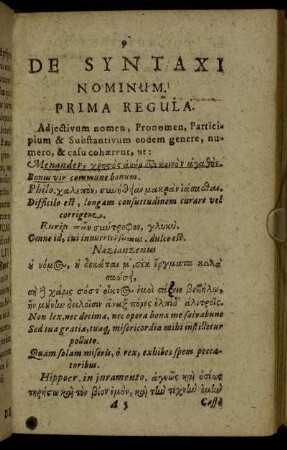 9
DE SYNTAXI
NOMINUM.
PRIMA REGULA.
Adjectivum nomen, Pronomen, Partici-
pium & Substantivum eodem genere, nu-
mero, & casu cohærent, ut:
Menander, χρηστὸς ἀνὴρ κοινὸν ἀγαθόν.
Bonus vir commune bonum.
Philo. χαλεπὸν, συνήθειαν μακρὰν ἰάσασθαι.
Difficile est, longam consuetudinem curare vel
corrigere.
Eurip. πᾶν σύντροφον, γλυκύ.
Omne id, cui innutriti sumus, dulce est.
Nazianzenus
ἐ νόμ@, ἐ δεκάται μ' ἔργματα καλὰ
σαώσῃ,
σὴ ἢ χάρις σόστ' οἶκτ@ ἐμοὶ βεβήλῳ,
ἣν μούνην δειλοῖσιν ἄναξ πόρες ἐλπίδ' ἀλιτροῖς.
Non lex, nec decima, nec opera bona me salvabunt
Sed tua gratia, tuaq, misericordia mihi instilletur
polluto.
Quam solam miseris, ô rex, exhibes spem pecca-
toribus.
Hippocr. in juramento. ἁγνῶς καὶ ὁσίως
τηρήσω καὶ τὸν βίον ἐμὸν, καὶ τὴν τέχνην ἐμὴν
A 5 Castè